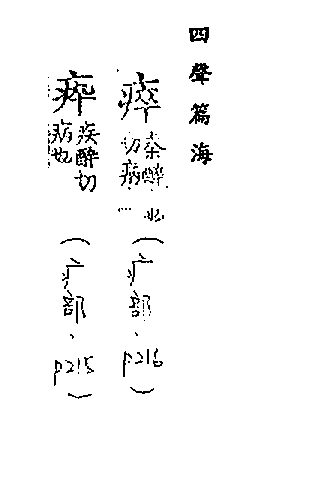 四聲篇海
瘁 秦醉切病（疒部、p216）
疩 疾醉切病也（疒部、p215）